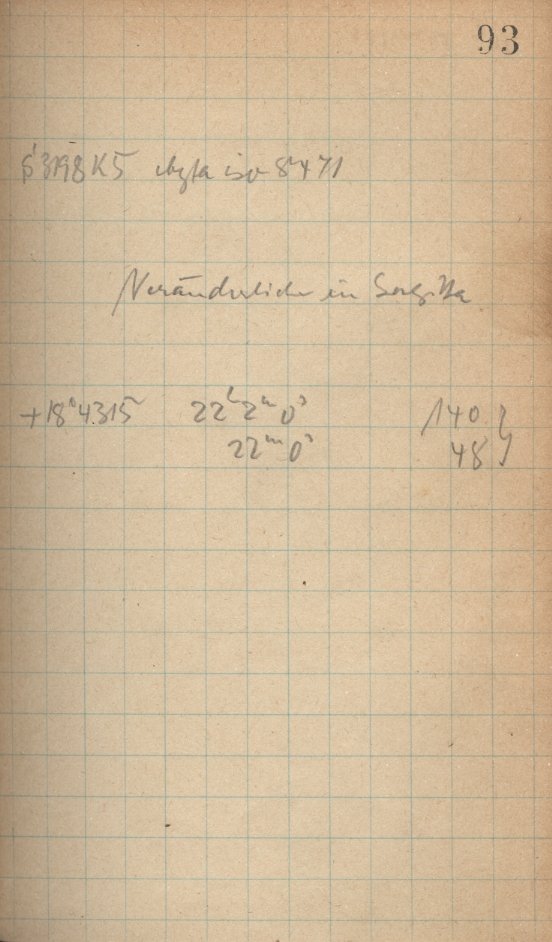 93
3198 K5 iso 8 471
Veränderliche in Sagitta
+18°4315 22ʰ 2ᵐ 0ˢ 140
22ᵐ 0ˢ 48